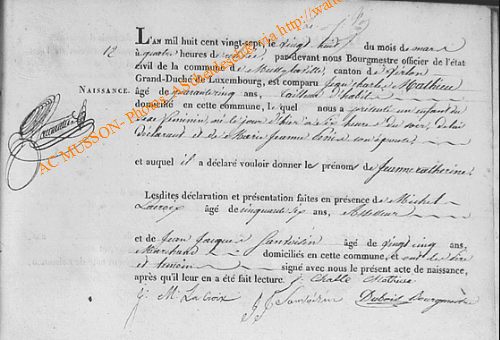 12
NAISSANCE.
L'AN mil huit cent vingt-sept, le vingt huit du mois de mars
à quatre heures de relevée, par-devant nous Bourgmestre officier de l'état
civil de la commune de Mussy-la-ville, canton de Virton
Grand-Duché de Luxembourg, est comparu Jean Charles Mathieu
âgé de quarante cinq ans, tailleur d'habits
domicilié en cette commune, le quel nous a présenté un enfant du
sexe féminin, né le jour d'hier à dix heures du soir, de lui
déclarant et de Marie Jeanne son épouse
et auquel il a déclaré vouloir donner les prénoms de Jeanne Catherine
Lesdites déclaration et présentation faites en présence de Michel
Lacroix âgé de cinquante six ans,
et de Jean Jacques Santvisin âgé de vingt cinq ans,
Marchand domiciliés en cette commune, et ont le père
et témoin signé avec nous le présent acte de naissance,
après qu'il leur en a été fait lecture. J: Charle Mathieu
J: M: La Croix
Dubois Bourgmestre
AC MUSSON- Photo via http://